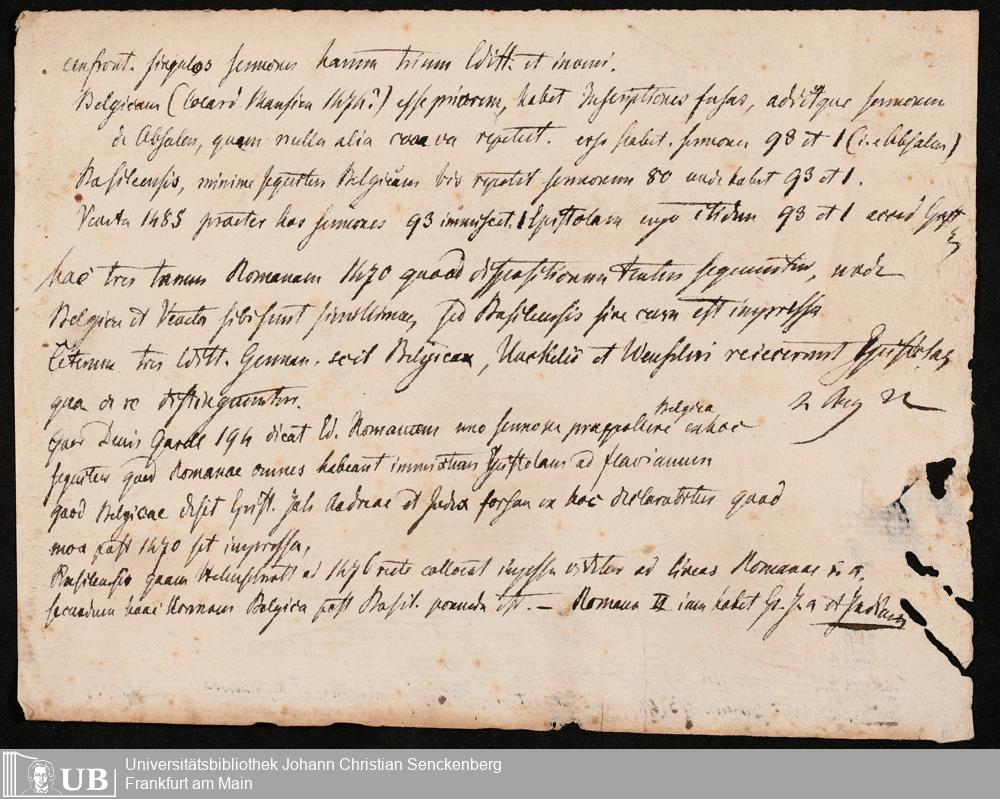 confront. singulos sermones harum trium Editt. et inveni.
Belgicam (Colard Mansion 1474?) esse priorem, habet Inscriptiones fusas, additque sermonem
de Absalon, quem nulla alia repetiit. ergo habet. sermones 98 et 1 (i. e Absalon)
Basileensis, minime sequitur Belgicam bis repetit sermonem 80 unde habet 93 et 1.
Veneta 1485 praeter hos sermones 93 immiscet. 1 Epistolam ergo itidem 93 et 1 acced Epist
hae tres tamen Romanam 1470 quoad dispositionem textus sequuntur, unde
Belgica et Veneta sibi sunt simillimae, sed Basileensis sine cura est impressa
Ceterum tres Editt. German. scil Belgicae, et Wensleri reiecerunt Epistolas
qua de re distinguuntur.
2 Aug 22
quod Denis Garell 194 dicat Ed. Romanam uno sermone praepollere Belgica ex hoc
sequitur quod Romanae omnes habeant immixtam Epistolam ad flavianum
quod Belgicae desit Epist. Joh Andreae et Index forsan ex hoc declarabitur quod
mox post 1470 sit impressa,
Basileensis quam Helmschrott ad 1476 recte collocat impressa videtur ad lineas Romanae
secundum hanc Normam Belgica post Basil. ponenda est. — Romana II iam habet Ep. J. a et Indicem
Universitätsbibliothek Johann Christian Senckenberg
Frankfurt am Main
UB